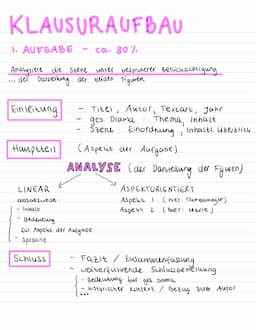 KLAUSURAUFBAU
1. AUFGABE - ca. 80%
Analysiere die Szene unter besonderer Berücksichtigung
... der Darstellung der beiden Figuren
Einleitung - Titel, Autor, Textart, Jahr
- ges. Drama: Thema, Inhalt
- Szene: Einordnung, Inhaltsüberblick
Hauptteil (Aspekt der Aufgabe)
ANALYSE (der Darstellung der Figuren)
LINEAR
abschnittsweise:
- Inhalt
- Bedeutung
für Aspekt der Aufgabe
- Sprache
ASPEKTORIENTIERT
Aspekt 1 (hier: Tambourmajor)
Aspekt 2 (hier: Marie)
Schluss - Fazit / Zusammenfassung
- weiterführende Schlussbemerkung
- Bedeutung für ges. Drama
- historischer Kontext / Bezug zum Autor
...